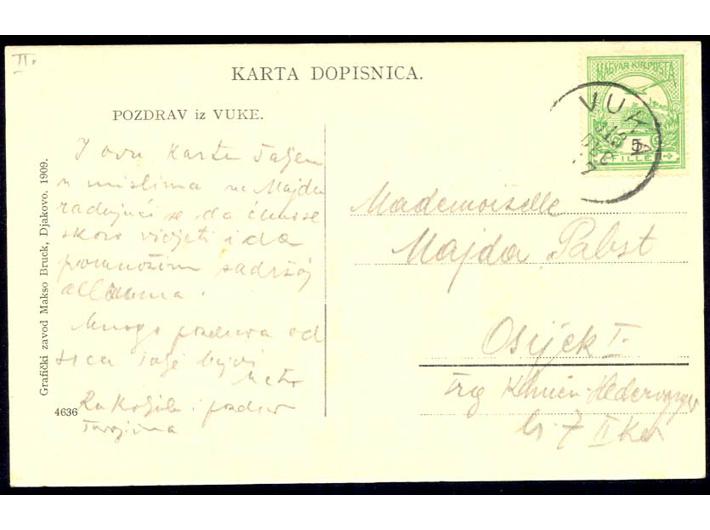 II.
KARTA DOPISNICA.
POZDRAV iz VUKE.
MAGYAR KIR. POSTA
5
FILLER
VUKA
I ovu kartu šaljem
u mislima na Majdu
radujući se da ćemo se
skoro vidjeti i da
pomnožim sadržaj
albuma.
Mnogo pozdrava od
srca šalje
i pozdrav
Tvojima
Mademoiselle
Majda Pabst
Osijek I.
trg
br 7 II kat
Grafički zavod Makso Bruck, Djakovo. 1909.
4636